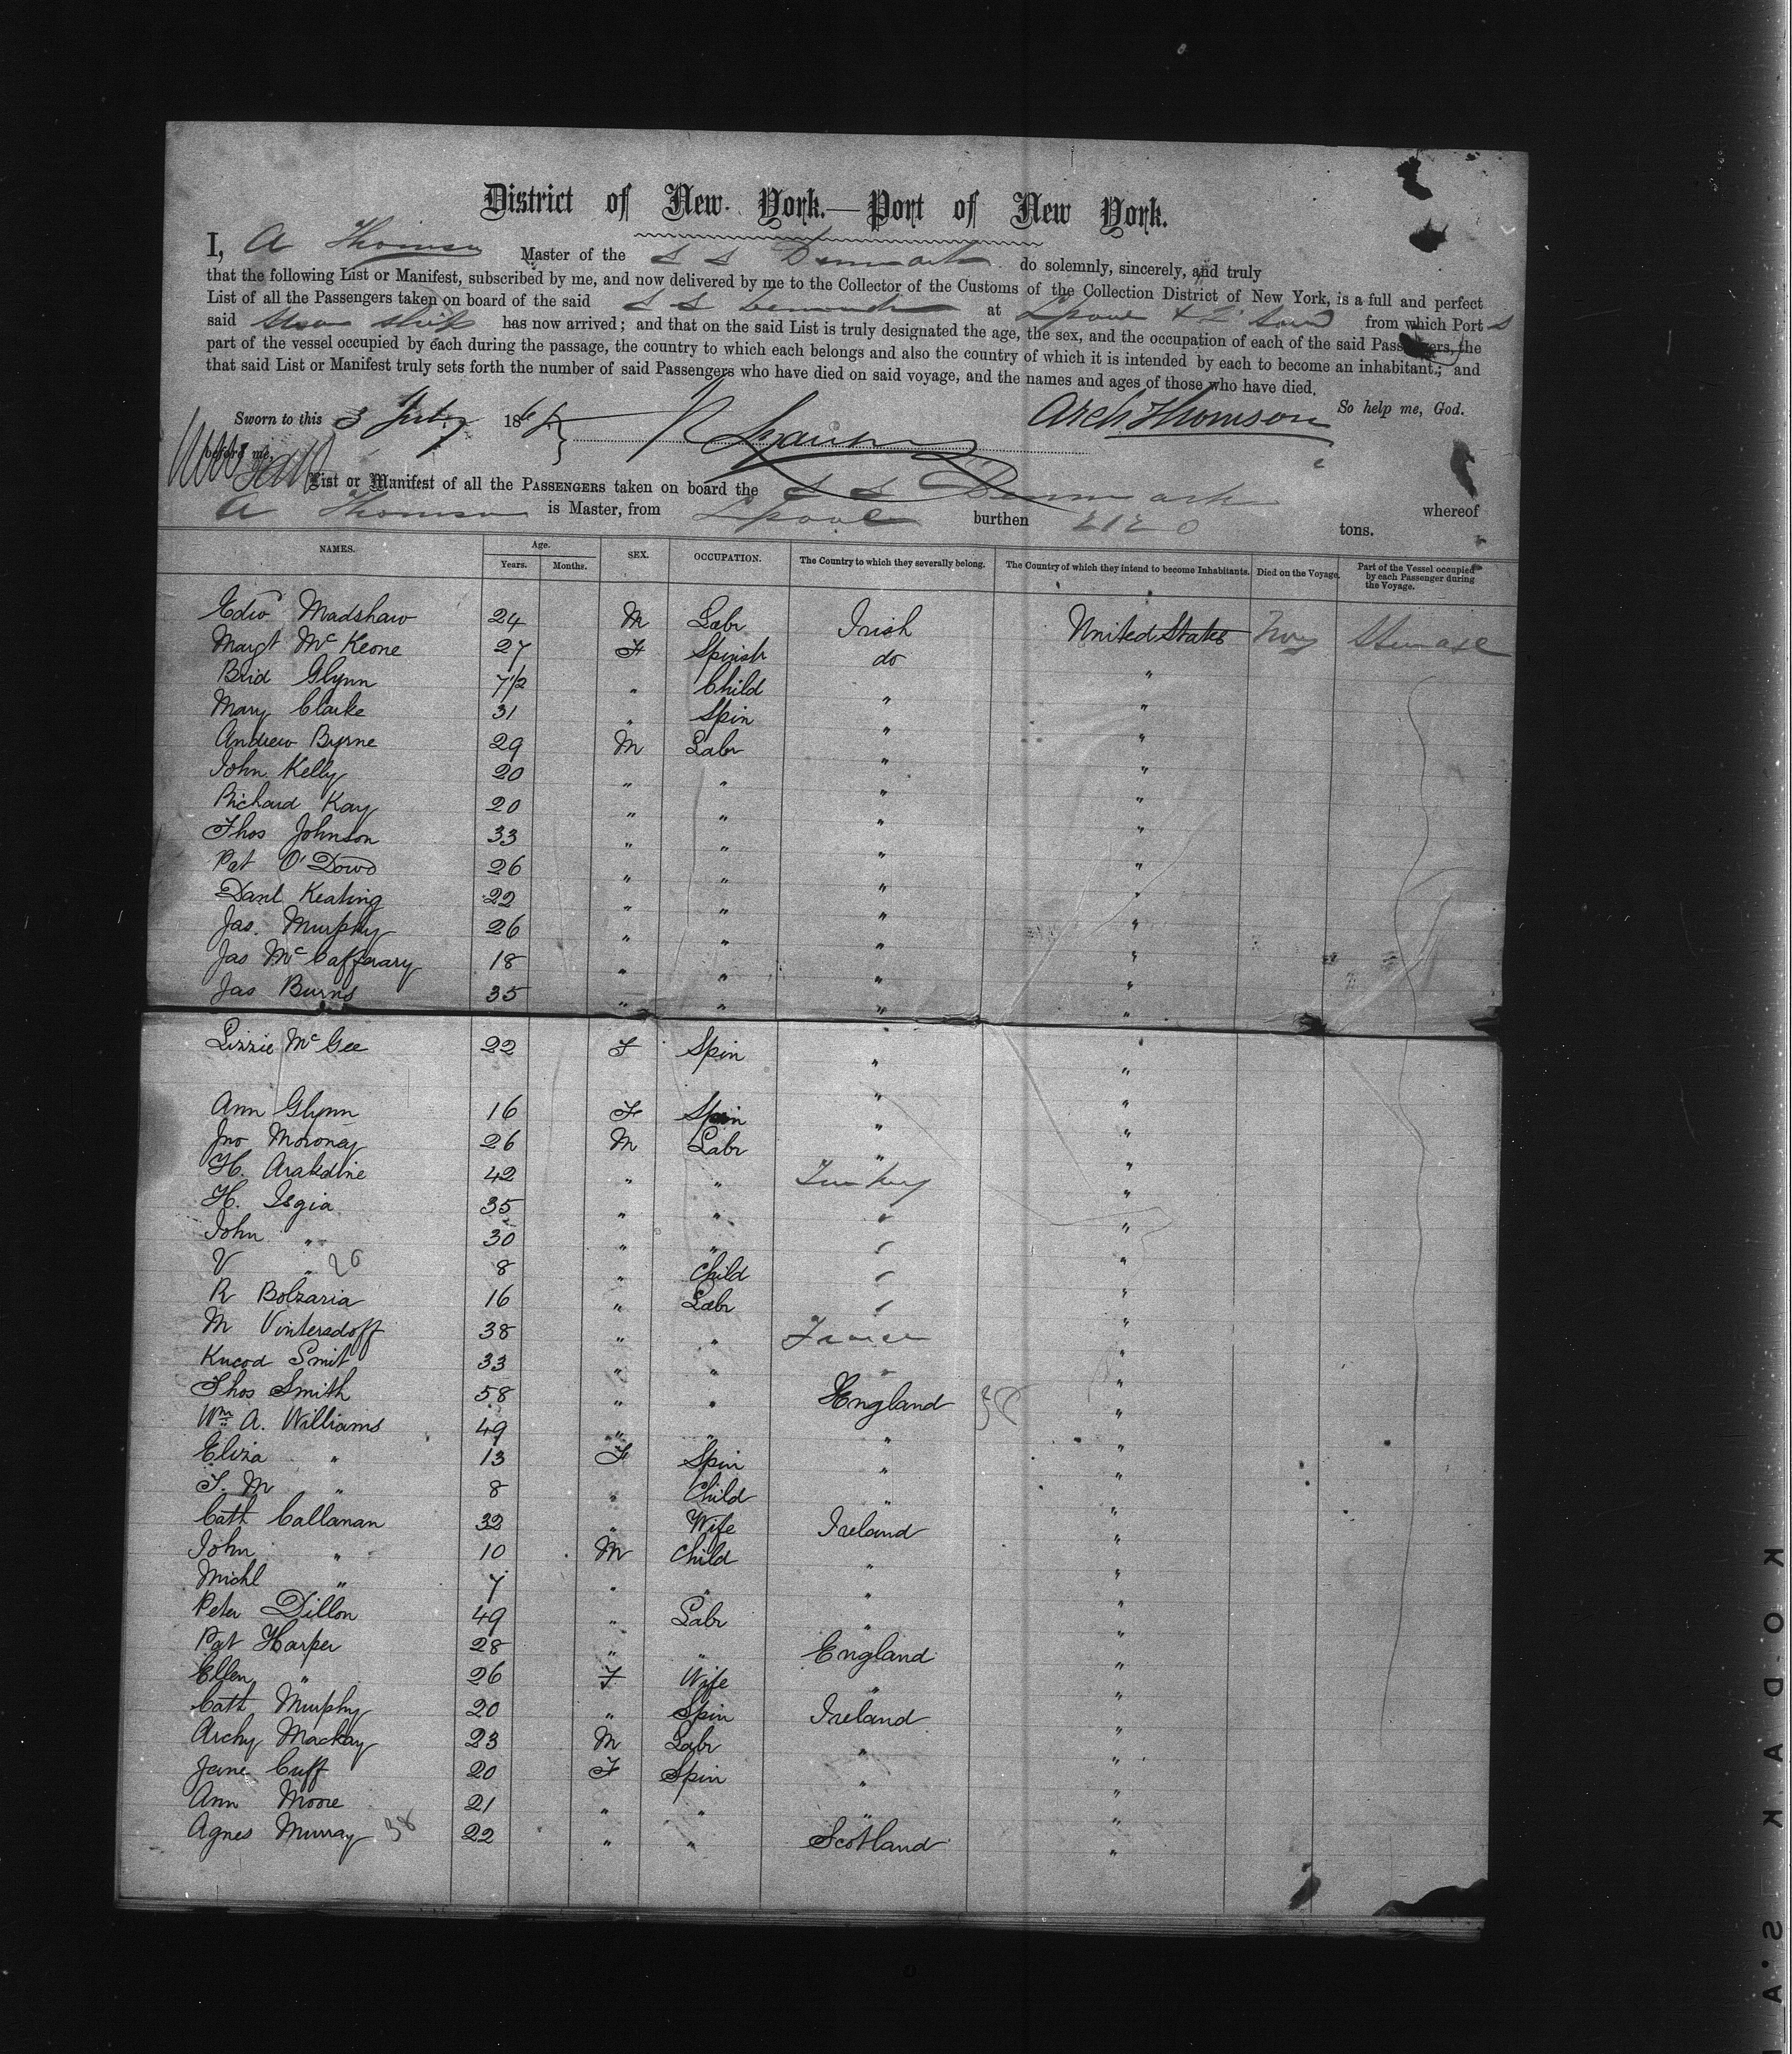 District of New York.—Port of New York.
I, A Thomson Master of the S S Denmark do solemnly, sincerely, and truly
that the following List or Manifest, subscribed by me, and now delivered by me to the Collector of the Customs of the Collection District of New York, is a full and perfect
List of all the Passengers taken on board of the said S S Denmark at Lpool & from which Port s
said Steam Ship has now arrived; and that on the said List is truly designated the age, the sex, and the occupation of each of the said Passengers, the
part of the vessel occupied by each during the passage, the country to which each belongs and also the country of which it is intended by each to become an inhabitant; and
that said List or Manifest truly sets forth the number of said Passengers who have died on said voyage, and the names and ages of those who have died.
So help me, God.
Sworn to this 3 July 186 Arch Thomson
before me,
List or Manifest of all the PASSENGERS taken on board the S S Denmark whereof
A Thomson is Master, from Lpool burthen tons.
NAMES. Age. Years. Months. SEX. OCCUPATION. The Country to which they severally belong. The Country of which they intend to become Inhabitants. Died on the Voyage. Part of the Vessel occupied by each Passenger during the Voyage.
Edw Madshaw 24 M Labr Irish United States Steerage
Margt McKeone 27 F do "
Brid Glynn 7 1/2 " Child " "
Mary Clarke 31 " Spin " "
Andrew Byrne 29 M Labr " "
John Kelly 20 " " " "
Richard Kay 20 " " " "
Thos Johnson 33 " " " "
Pat O'Dowd 26 " " " "
Danl Keating 22 " " " "
Jas. Murphy 26 " " " "
Jas McCafferary 18 " " " "
Jas Burns 35 " " " "
Lizzie McGee 22 F Spin " "
Ann Glynn 16 F Spin " "
Jno Moroney 26 M Labr " "
H. Arakdine 42 " " Turkey "
H. Isgia 35 " " " "
John " 30 " " " "
V " 26 8 " Child " "
R Bolzaria 16 " Labr " "
M Vintersdoff 38 " " France "
Knood Smit 33 " " " "
Thos Smith 58 " " England "
Wm A. Williams 49 " " " "
Eliza " 13 F Spin " "
T. M " 8 " Child " "
Cath Callanan 32 " Wife Ireland "
John " 10 M Child " "
Michl " 7 " " " "
Peter Dillon 49 " Labr " "
Pat Harper 28 " " England "
Ellen " 26 F Wife " "
Cath Murphy 20 " Spin Ireland "
Archy Mackay 23 M Labr " "
Jane Cuff 20 F Spin " "
Ann Moore 21 " " " "
Agnes Murray 38 22 " " Scotland "
KODAK S.A